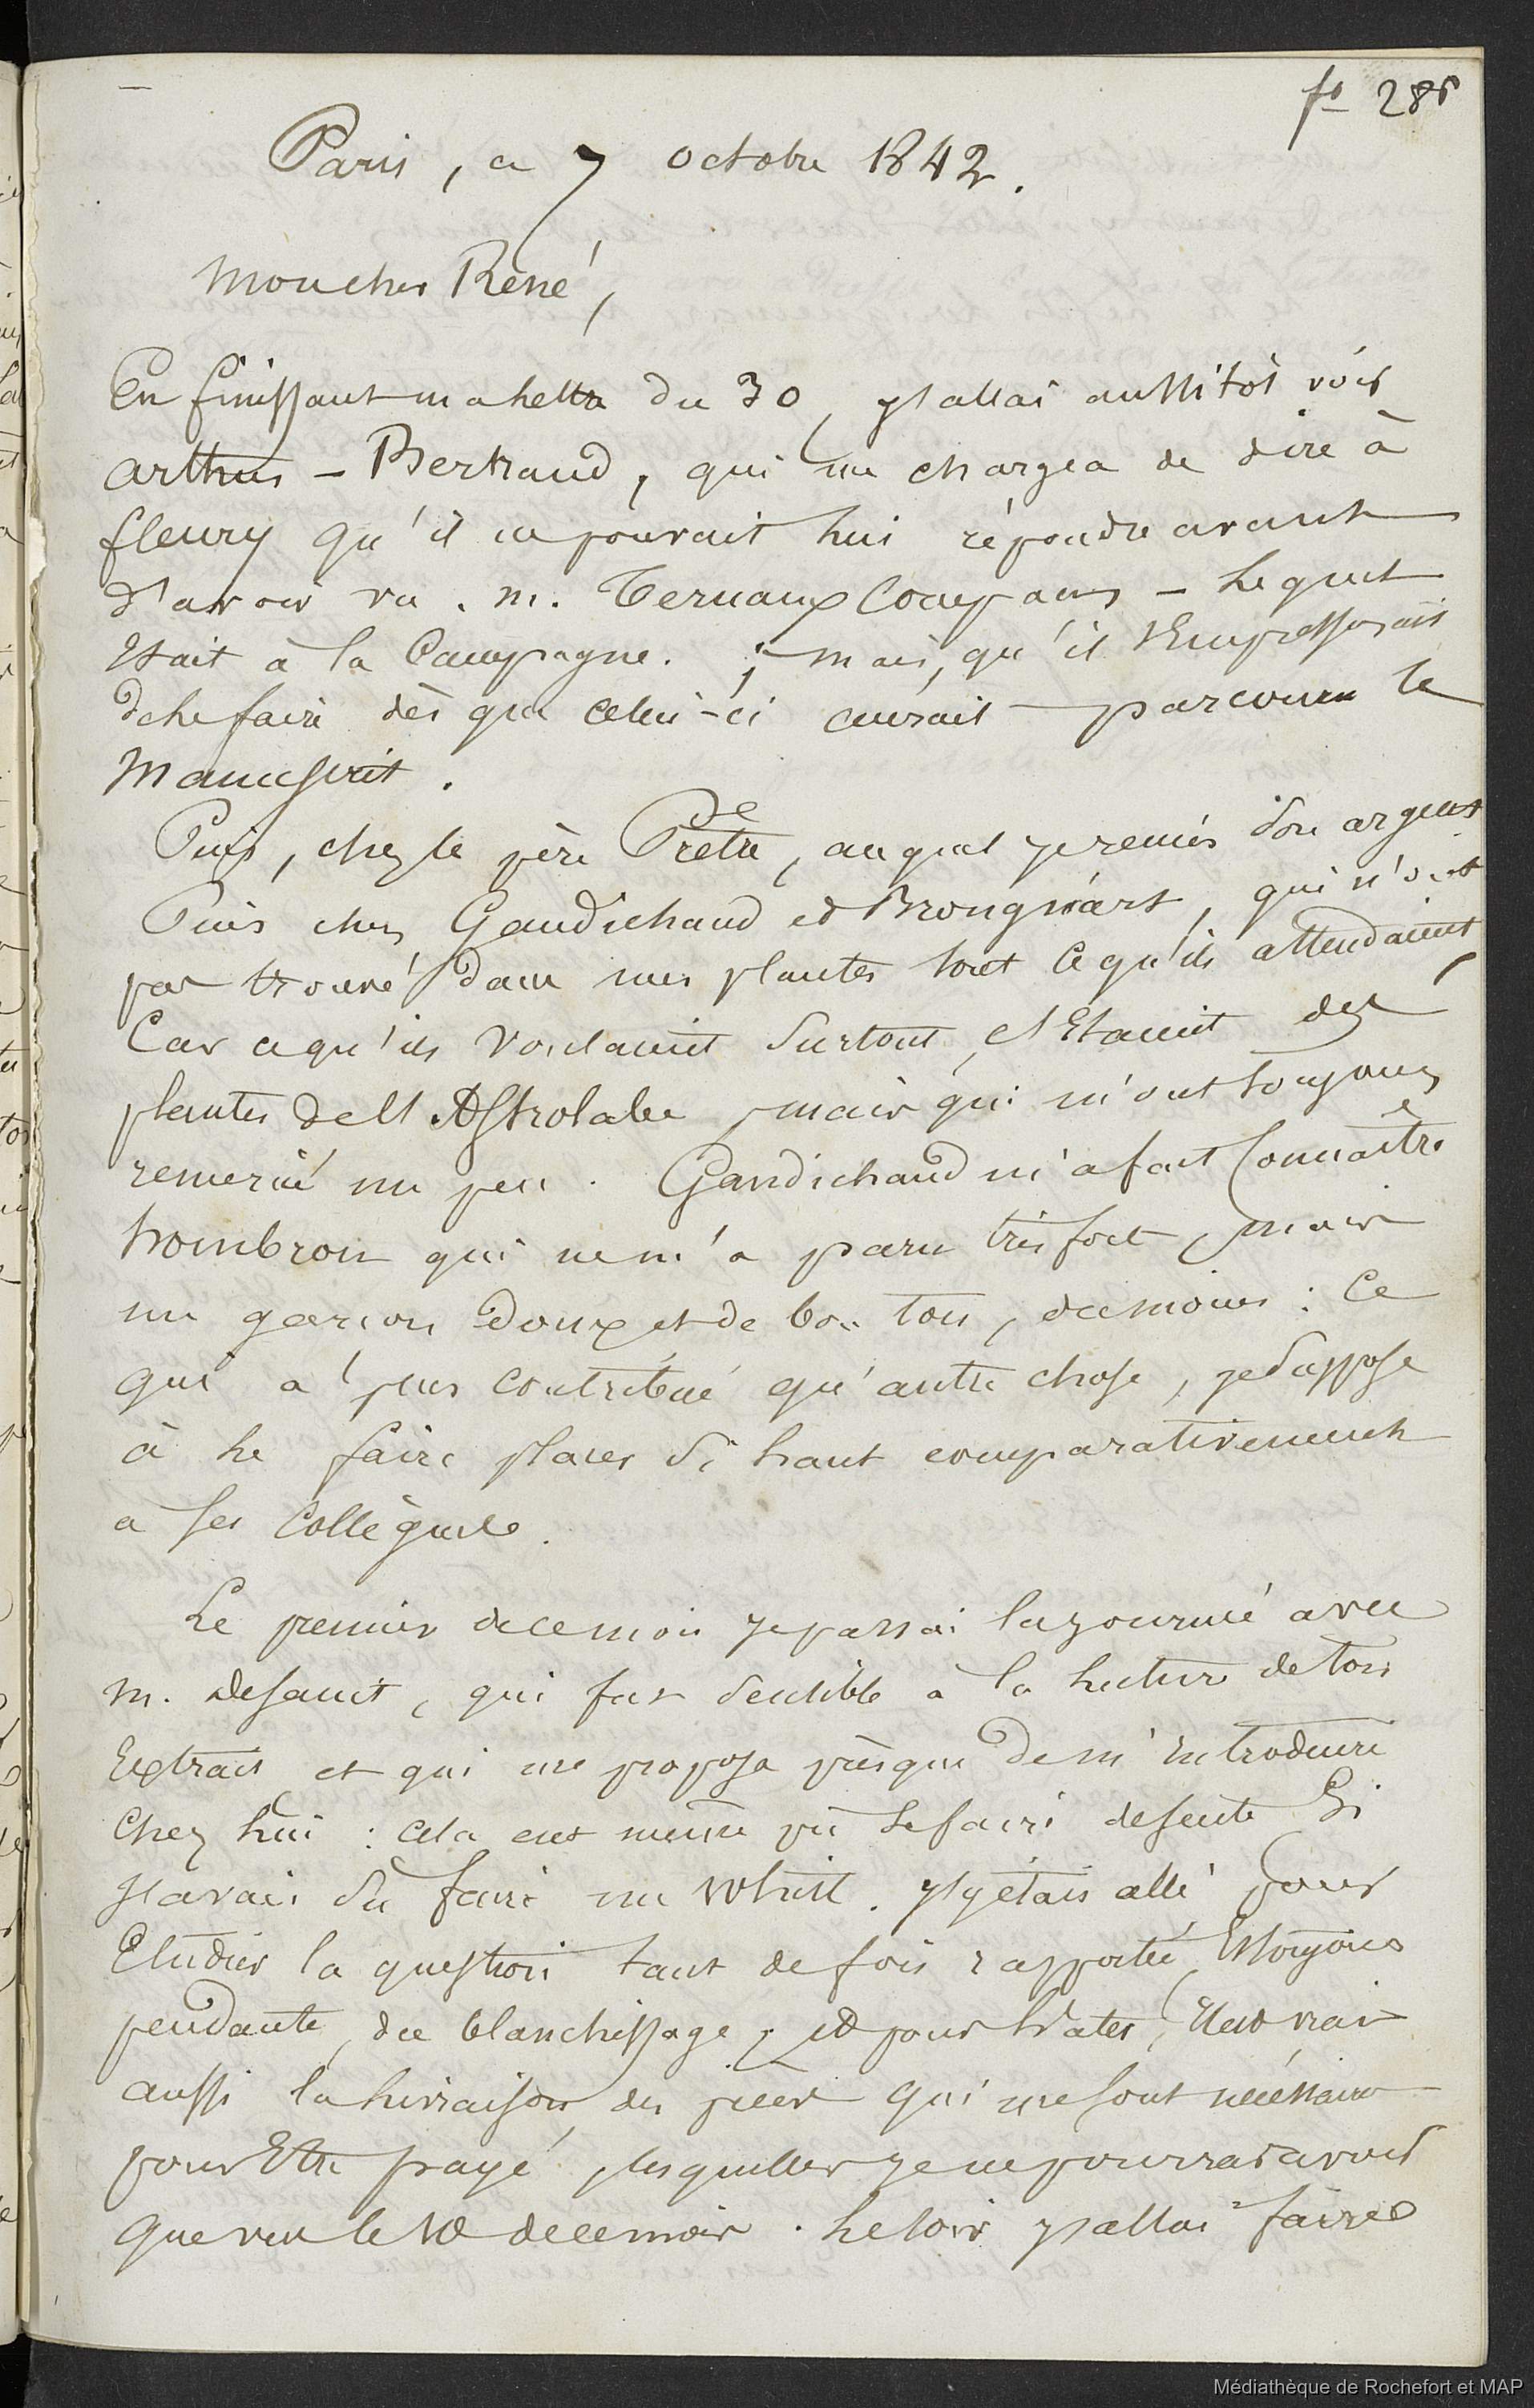 fo 285
Paris, ce 7 octobre 1842.
Mon cher René,
En finissant ma lettre du 30, j'allai aussitôt voir
Arthus-Bertrand, qui me chargea de dire à
fleury qu'il ne pouvait lui répondre avant
d'avoir vu . m. Ternaux Compans - Lequel
Etait à la Campagne. ; mais, qu'il s'Empresserait
de le faire dès que celui-ci aurait parcouru le
Manuscrit.
Puis, chez le père Prêtre, auquel je remis son argent
Puis chez Gaudichaud et Brongniart, qui n'ont
pas trouvé dans mes plantes tout ce qu'ils attendaient,
Car ce qu'ils voulaient surtout, c'Etaient des
plantes de l'Astrolabe, mais qui m'ont toujours
remercié un peu. Gaudichaud m'a fait Connaître
hombron qui ne m'a paru très fort, mais
un garçon doux et de bon ton, du moins : Ce
qui a plus contribué qu'autre chose, je suppose
à le faire placer si haut comparativement
a ses Collègues.
Le premier de ce mois je passai la journée avec
m. desaint, qui fut sensible à la lecture de ton
Extrait et qui me proposa presque de m'introduire
Chez lui : Cela eut même pu se faire de suite Si
j'avais su faire un whist. j'y étais allé pour
Etudier la question tant de fois rapportée Et toujours
pendante, du blanchissage,
aussi la livraison des pièces qui me sont nécessaires
pour Etre payé, lesquelles je ne pourrai avoir
que vers le 10 de ce mois. Le soir j'allai faire
Médiathèque de Rochefort et MAP